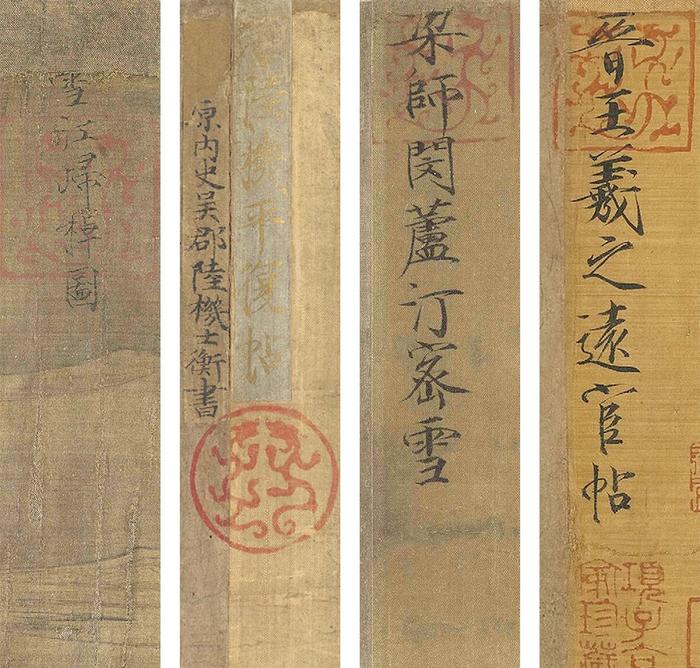 雪江歸棹圖
陸機平復帖
原内史吳郡陸機士衡書
梁師閔蘆汀密雪
晉王羲之遠宦帖